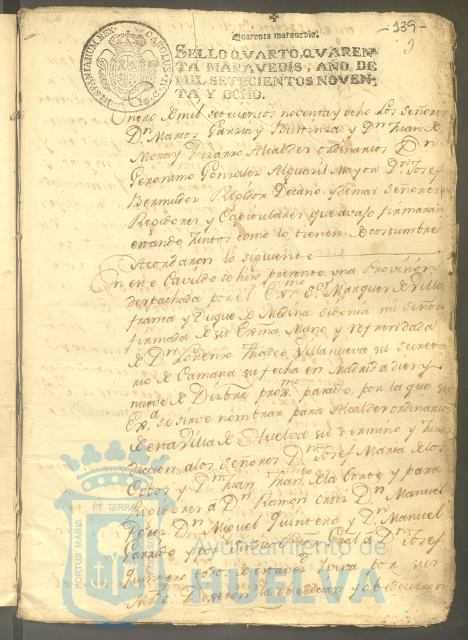 -139-
9
Quarenta maravedis.
SELLO QVARTO, QVAREN-
TA MARAVEDIS, AÑO DE
MIL SETECIENTOS NOVEN-
TA Y OCHO.
HISPANIARUM REX CAROLUS IV D G
Enero de mil setecientos noventa y ocho los señores
Dn Marcos Garcia y Dn Juan de
Mora y Pizarro Alcaldes ordinarios Dn
Geronimo Gonzalez Alguacil Mayor Dn Josef
Bermudez Regidor Decano y demas señores
Regidores y Capitulares que avajo firmaran
estando juntos como lo tienen de costumbre
Acordaron lo siguiente
En este Cavildo se hizo presente una Provision
despachada por el Exmo Sr Marques de Villa
franca y Duque de Medina Sidonia mi señor
firmada de su Exma Mano y refrendada
de Dn Lorenzo Thadeo Villanueva su secreta
rio de Camara su fecha en Madrid a diez y
nueve de Dizbre proxmo pasado, por la que su
Exa se sirve nombrar para Alcaldes ordinarios
de esta Villa de Huelva su termino y Juris
diccion a los señores Dn Josef Maria de los
Cobos y Dn Juan de la Corte y para
Regidores a Dn Ramon Dn Manuel
Dn Miguel Quintero y Dn Manuel
Garrido y por a Dn Josef
Quintero todos de esta por sus
Mrds. Dixeron la obedecian y obedecieron
PORTUS MARIS ET TERRAE CUSTODIA
Ayuntamiento de
HUELVA